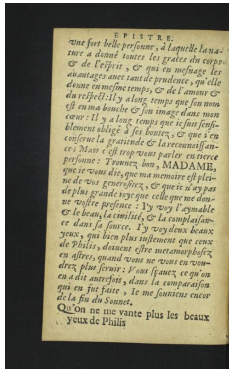 EPISTRE.
vne fort belle personne, à laquelle la na-
ture a donné toutes les graces du corps
& de l'esprit, & qui en mesnage les
auantages auec tant de prudence, qu'elle
donne en mesme temps, & de l'amour &
du respect: Il y a long temps que son nom
est en ma bouche & son image dans mon
cœur: Il y a long temps que ie suis sensi-
blement obligé à ses bontez, & que i'en
conserue la gratitude & la reconnoissan-
ce; Mais c'est trop vous parler en tierce
personne: Trouuez bon, MADAME,
que ie vous die, que ma memoire est plei-
ne de vos generositez, & que ie n'ay pas
de plus grande ioye que celle que me don-
ne vostre presence: I'y voy l'aymable
& le beau, la ciuilité, & la complaisan-
ce dans sa source. I'y voy deux beaux
yeux, qui bien plus iustement que ceux
de Philis, deiuent estre metamorphosez
en astres, quand vous ne vous en vou-
drez plus seruir: Vous sçauez ce qu'on
en a dit autrefois, dans la comparaison
qui en fut faite, ie me souuiens encor
de la fin du Sonnet.
Qu'on ne me vante plus les beaux
yeux de Philis